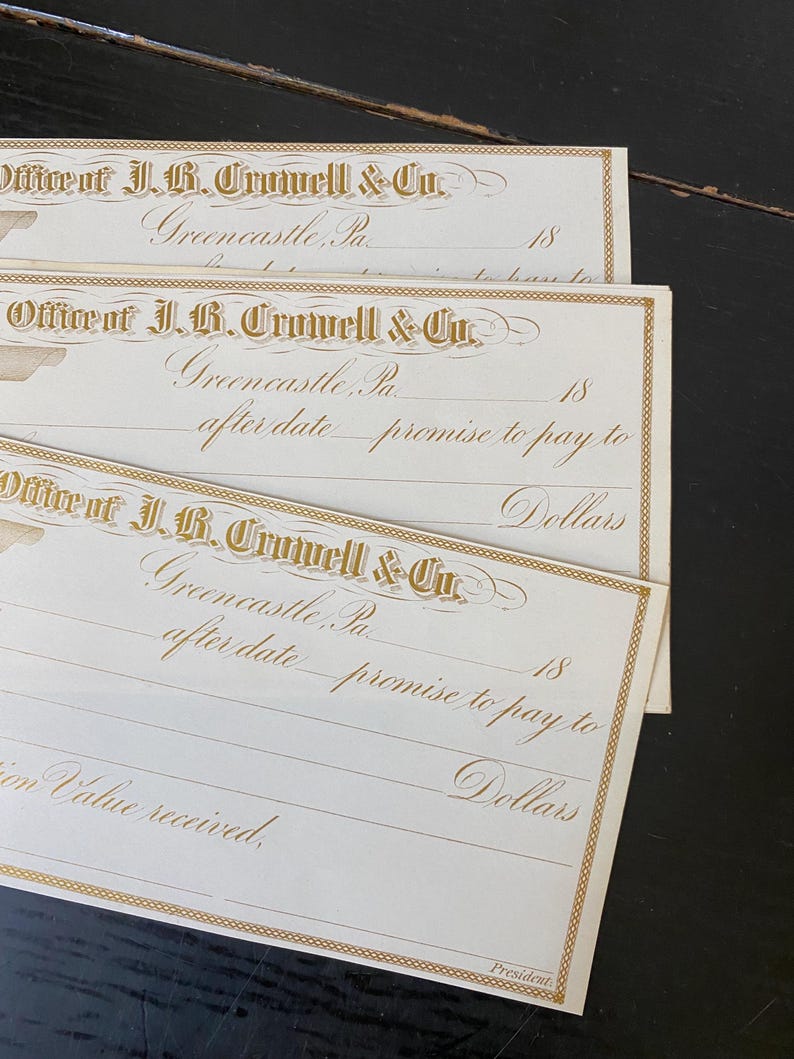 Office of J. B. Crowell & Co.
Greencastle, Pa. 18
promise to pay to
Office of J. B. Crowell & Co.
Greencastle, Pa. 18
after date promise to pay to
Dollars
Office of J. B. Crowell & Co.
Greencastle, Pa. 18
after date promise to pay to
Dollars
Value received,
President.